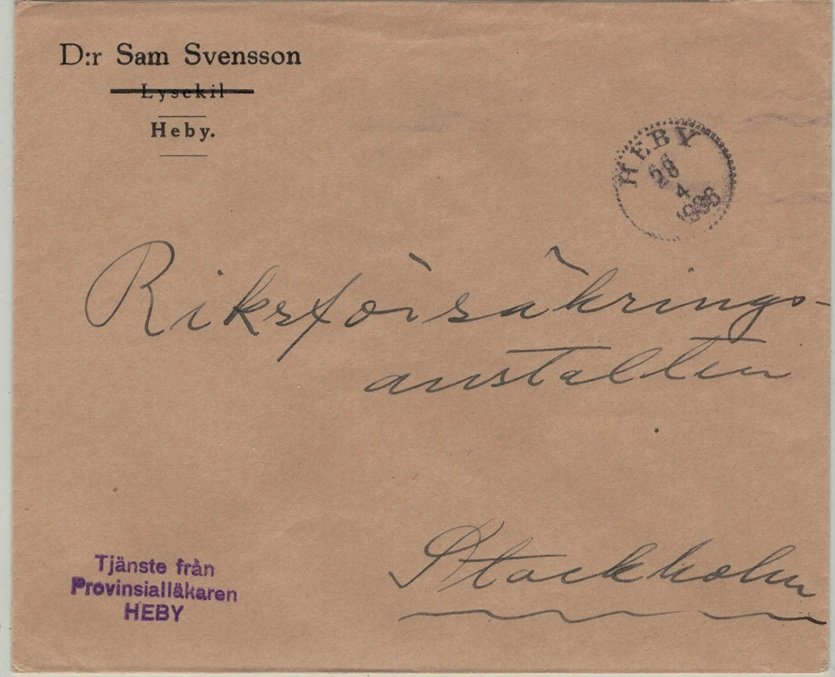 D:r Sam Svensson
Lysekil
Heby.
HEBY
28
4
1936
Riksförsäkrings-
anstalten
Stockholm
Tjänste från
Provinsialläkaren
HEBY